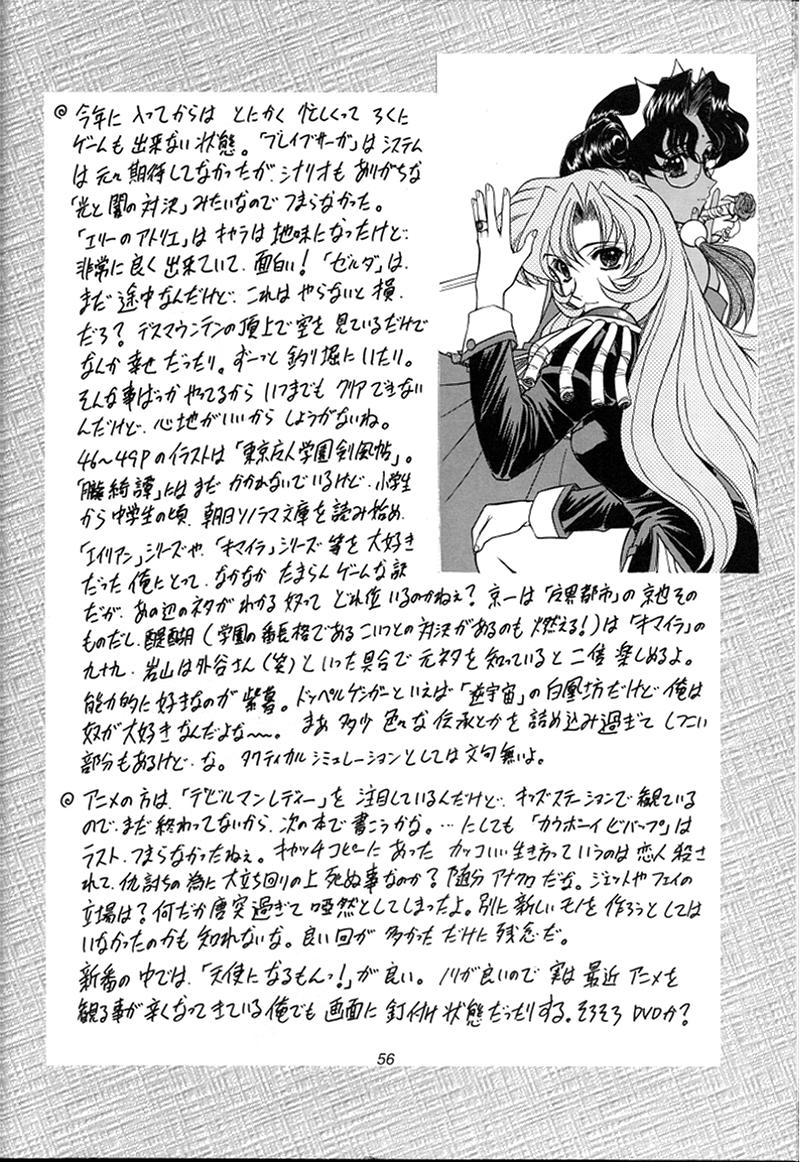 ◎ 今年に入ってからは とにかく 忙しくって ろくに
ゲームも 出来ない 状態。「ブレイブサーガ」は システム
は 元々 期待してなかったが、シナリオも ありがちな
「光と闇の対決」みたいなので つまらなかった。
「エリーのアトリエ」は キャラは 地味になったけど
非常に良く 出来ていて、面白い！「ゼルダ」は、
まだ 途中なんだけど、これは やらないと 損、
だろ？ デスマウンテンの頂上で空を 見ているだけで
なんか 幸せ だったり。ずーっと 釣り堀に いたり。
そんな事ばっか やってるから いつまでも クリア できない
んだけど、心地がいいから しょうがないね。
46〜49Pのイラストは「東京魔人学園剣風帖」。
「朧綺譚」には まだ かかれないでいるけど、小学生
から 中学生の頃、朝日ソノラマ文庫を 読み始め、
「エイリアン」シリーズや、「キマイラ」シリーズ 等を 大好き
だった 俺にとって、なかなか たまらんゲームな訳
だが、あの辺のネタが わかる 奴って どれ位 いるのかねぇ？ 京一は「魔界都市」の 京也 その
ものだし、醍醐（学園の番長格である こいつとの対決があるのも 燃える！）は「キマイラ」の
九十九、岩山は外谷さん（笑）といった具合で 元ネタを 知っていると 二倍 楽しめるよ。
能力的に 好きなのが 紫暮。ドッペルゲンガーといえば「逆宇宙」の 白凰坊だけど 俺は
奴が 大好き なんだよな〜〜。 まあ 多少 色々な 伝承とかを 詰め込み過ぎて しつこい
部分もあるけど、な。 タクティカルシミュレーションとしては 文句無いよ。
◎ アニメの方は、「デビルマンレディー」を 注目しているんだけど、キッズステーションで 観ている
ので、まだ 終わってないから、次の本で 書こうかな。…にしても「カウボーイビバップ」は
ラスト、つまらなかったねぇ。キャッチコピーに あった カッコいい生き方って いうのは 恋人 殺さ
れて、仇討ちの為に 大立ち回りの上 死ぬ事なのか？ 随分 アナクロ だな。ジェットや フェイの
立場は？ 何だか 唐突 過ぎて 唖然としてしまったよ。別に 新しいモノを 作ろうとしては
いなかったのかも 知れないな。良い回が 多かった だけに 残念だ。
新番の中では、「天使になるもんっ！」が 良い。ノリが良いので 実は 最近 アニメを
観る事が 辛くなってきている 俺でも 画面に 釘付け 状態だったりする。そろそろ DVDか？
56